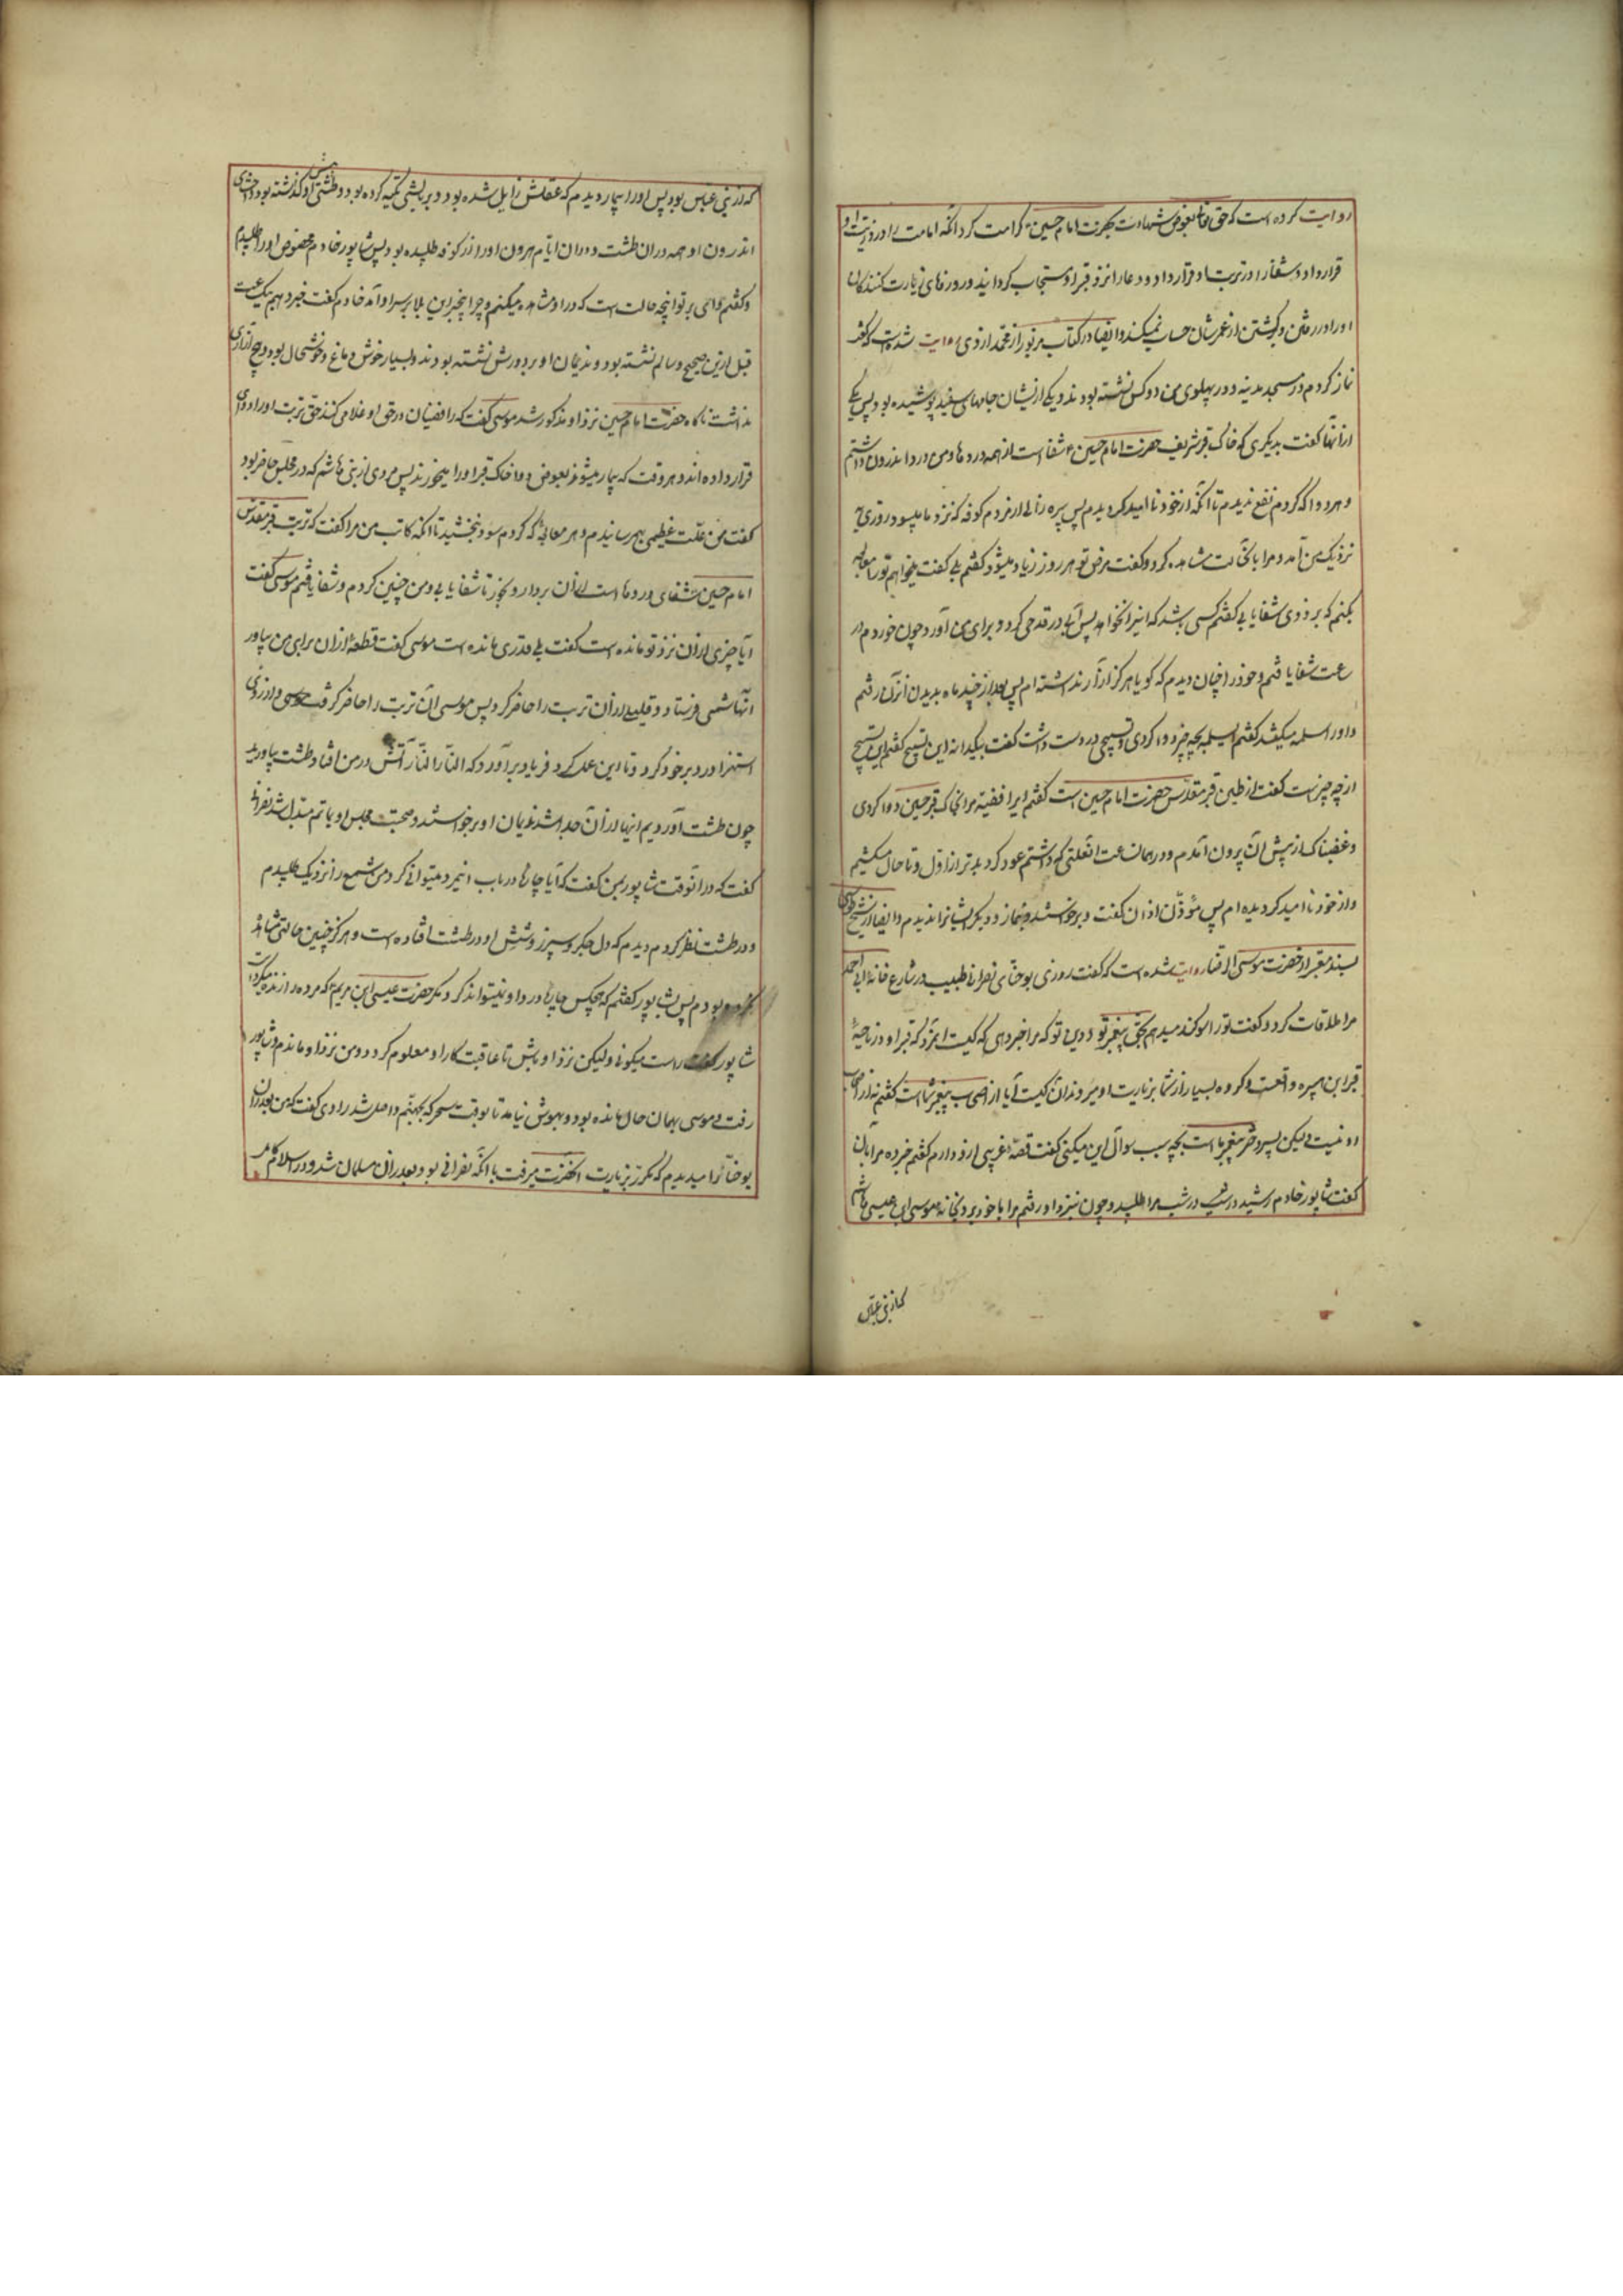 روایت کرده است که حق تعالی بعوض شهادت بحضرت امام حسین ع کرامت کرد انکه امامت را در ذریت او
قرار داد و شفا را در تربت او قرار داد و دعا را نزد قبر او مستجاب کردانید و روزهای زیارت کنندکان
او را در رفتن و برکشتن از عمر شان حساب نمیکند و ایضا در کتاب مزبور از محمد ازدی روایت شده است که گفت
نماز کردم در مسجد مدینه و در پهلوی من دو کس نشسته بودند و یکی از ایشان جامهای سفید پوشیده بود پس یکی
از انها گفت بدیکری که خاک قبر شریف حضرت امام حسین ع شفا است از همه دردها و من درد اندرون داشتم
و هر دوا که کردم نفع ندیدم تا آنکه از خود نا امید کردیدم پس پیره زالی از مردم کوفه که نزد ما میبود روزی
نزدیک من آمد و مرا باین حالت مشاهده کرد و گفت مرض تو هر روز زیاد میشود گفتم بلی گفت میخواهم تو را معالجه
بکنم که بزودی شفا یابی گفتم کسی باشد که اینرا نخواهد پس آبی در قدحی کرد و برای من آورد چون خوردم در
ساعت شفا یافتم و خود را چنان دیدم که کویا هرکز آزار نداشته ام پس بعد از چند ماه بدیدن آنزن رفتم
و او را سلمه میکفتند گفتم ای سلمه بچه چیز دوا کردی و تسبیحی در دست داشت گفت بیکدانه این تسبیح گفتم این تسبیح
از چه چیز است گفت از طین قبر مقدس حضرت امام حسین است گفتم ای رافضیه مرا بخاک قبر حسین دوا کردی
و غضبناک از پیش آن بیرون آمدم و در همان ساعت انعلتی که داشتم عود کرد بدتر از اول و تا حال میکشم
و از خود نا امید کردیده ام پس مؤذن اذان گفت و برخواستند بنماز و دیکر ایشانرا ندیدم و ایضا از شیخ طوسی
بسند معتبر از حضرت موسی الرضا روایت شده است که گفت روزی یوحنای نصرانی طبیب در شارع خانه ابی احمد
مرا ملاقات کرد و گفت تو را سوکند میدهم بحق پیغمبر تو و دین تو که مرا خبر دهی که کیست انمرد که قبر او در ناحیهٔ
قبر ابن هبیره واقعست و کروه بسیار از شما بزیارت او میروند آن کیست آیا از اصحاب پیغمبر شما است گفتم نه از اصحاب
او نیست و لیکن پسر دختر پیغمبر ما است بچه سبب سوال این میکنی گفت قصهٔ غریبی از او دارم گفتم خبر ده مرا بآن
گفت شاپور خادم رشید در شب مرا طلبید و چون نیزد او رفتم مرا با خود برد بخانه موسی ابن عیسی هاشمی
که از بنی عباس
که از بنی عباس بود پس او را بیمار دیدم که عقلش زایل شده بود و بر بالشی تکیه کرده بود و طشتی پیش او کذاشته بود و احشای
اندرون او همه در ان طشت و در ان ایام هرون او را از کوفه طلبیده بود پس شاپور خادم مخصوص او را طلبیدم
و گفتم وای بر تو اینچه حالت است که در او مشاهده میکنم و چرا اینچنین بلا بر سر او آمد خادم گفت خبر دهم یک ساعت
قبل ازین صحیح و سالم نشسته بود و ندیمان او بر دورش نشسته بودند و بسیار خوش دماغ و خوشحال بود و هیچ آزاری
نداشت ناکاه حضرت امام حسین نزد او مذکور شد موسی گفت که رافضیان در حق او غلو میکنند حتی تربت او را دوای
قرار داده اند و هر وقت که بیمار میشوند بعوض دوا خاک قبر او را میخورند پس مردی از بنی هاشم که در مجلس حاضر بود
گفت من علت عظیمی بهمرسانیدم و هر معالجه که کردم سود نبخشید تا انکه کاتب من مرا گفت که تربت قبر مقدس
امام حسین شفای دردها است از ان بردار و بخور تا شفا یابی و من چنین کردم و شفا یافتم موسی گفت
آیا چیزی از ان نزد تو مانده است گفت بلی قدری مانده است موسی گفت قطعهٔ از ان برای من بیاور
انهاشمی فرستاد و قلیلی از آن تربت را حاضر کرد پس موسی آن تربت را حاضر کرفت موسی و از روی
استهزا در دبر خود کرد و تا این عمل کرد فریاد برآورد که النار النار آتش در من افتاد طشت بیاورید
چون طشت آوردیم اینها از آن جدا شد ندیمان او برخواستند و صحبت مجلس او بماتم مبدل شد نصرانی
گفت که در آنوقت شاپور بمن گفت که آیا چاره در باب اینمرد میتوانی کرد من شمع را نزدیک طلبیدم
و در طشت نظر کردم دیدم که دل و جکر و سپرز و شش او در طشت افتاده است و هرکز چنین حالتی مشاهده
نکرده بودم پس بشاپور گفتم که هیچکس چاره درد او نمیتواند کرد مکر حضرت عیسی ابن مریم که مرده را زنده میکردانید
شاپور گفت راست میکوئی ولیکن نزد او باش تا عاقبت کار او معلوم کردد و من نزد او ماندم و شاپور
رفت و موسی بهمان حال مانده بود و بهوش نیامد تا بوقت سحر که بجهنم واصل شد راوی گفت که من بعد از ان
یوحنا را میدیدم که مکرر بزیارت انحضرت میرفت با انکه نصرانی بود و بعد از ان مسلمان شد و در اسلام کامل